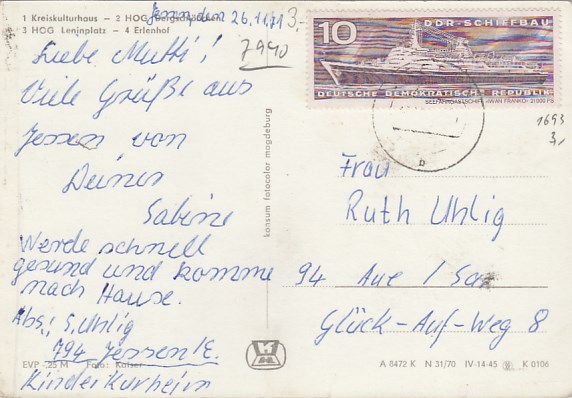 1 Kreiskulturhaus — 2 HOG
3 HOG Leninplatz — 4 Erlenhof
Jessen den 26.11.71
3,-
7940
Liebe Mutti!
Viele Grüße aus
Jessen von
Deiner
Sabine
Werde schnell
gesund und komme
nach Hause.
Abs.: S. Uhlig
794 Jessen/E.
Kinderkurheim
EVP -,25 M Foto: Kaiser
konsum fotocolor magdeburg
10
DDR-SCHIFFBAU
DEUTSCHE DEMOKRATISCHE REPUBLIK
SEEFAHRGASTSCHIFF »IWAN FRANKO« 21000 PS
b
1693
Frau
Ruth Uhlig
94 Aue / Sa
Glück-Auf-Weg 8
A 8472 K N 31/70 IV-14-45 K 0106